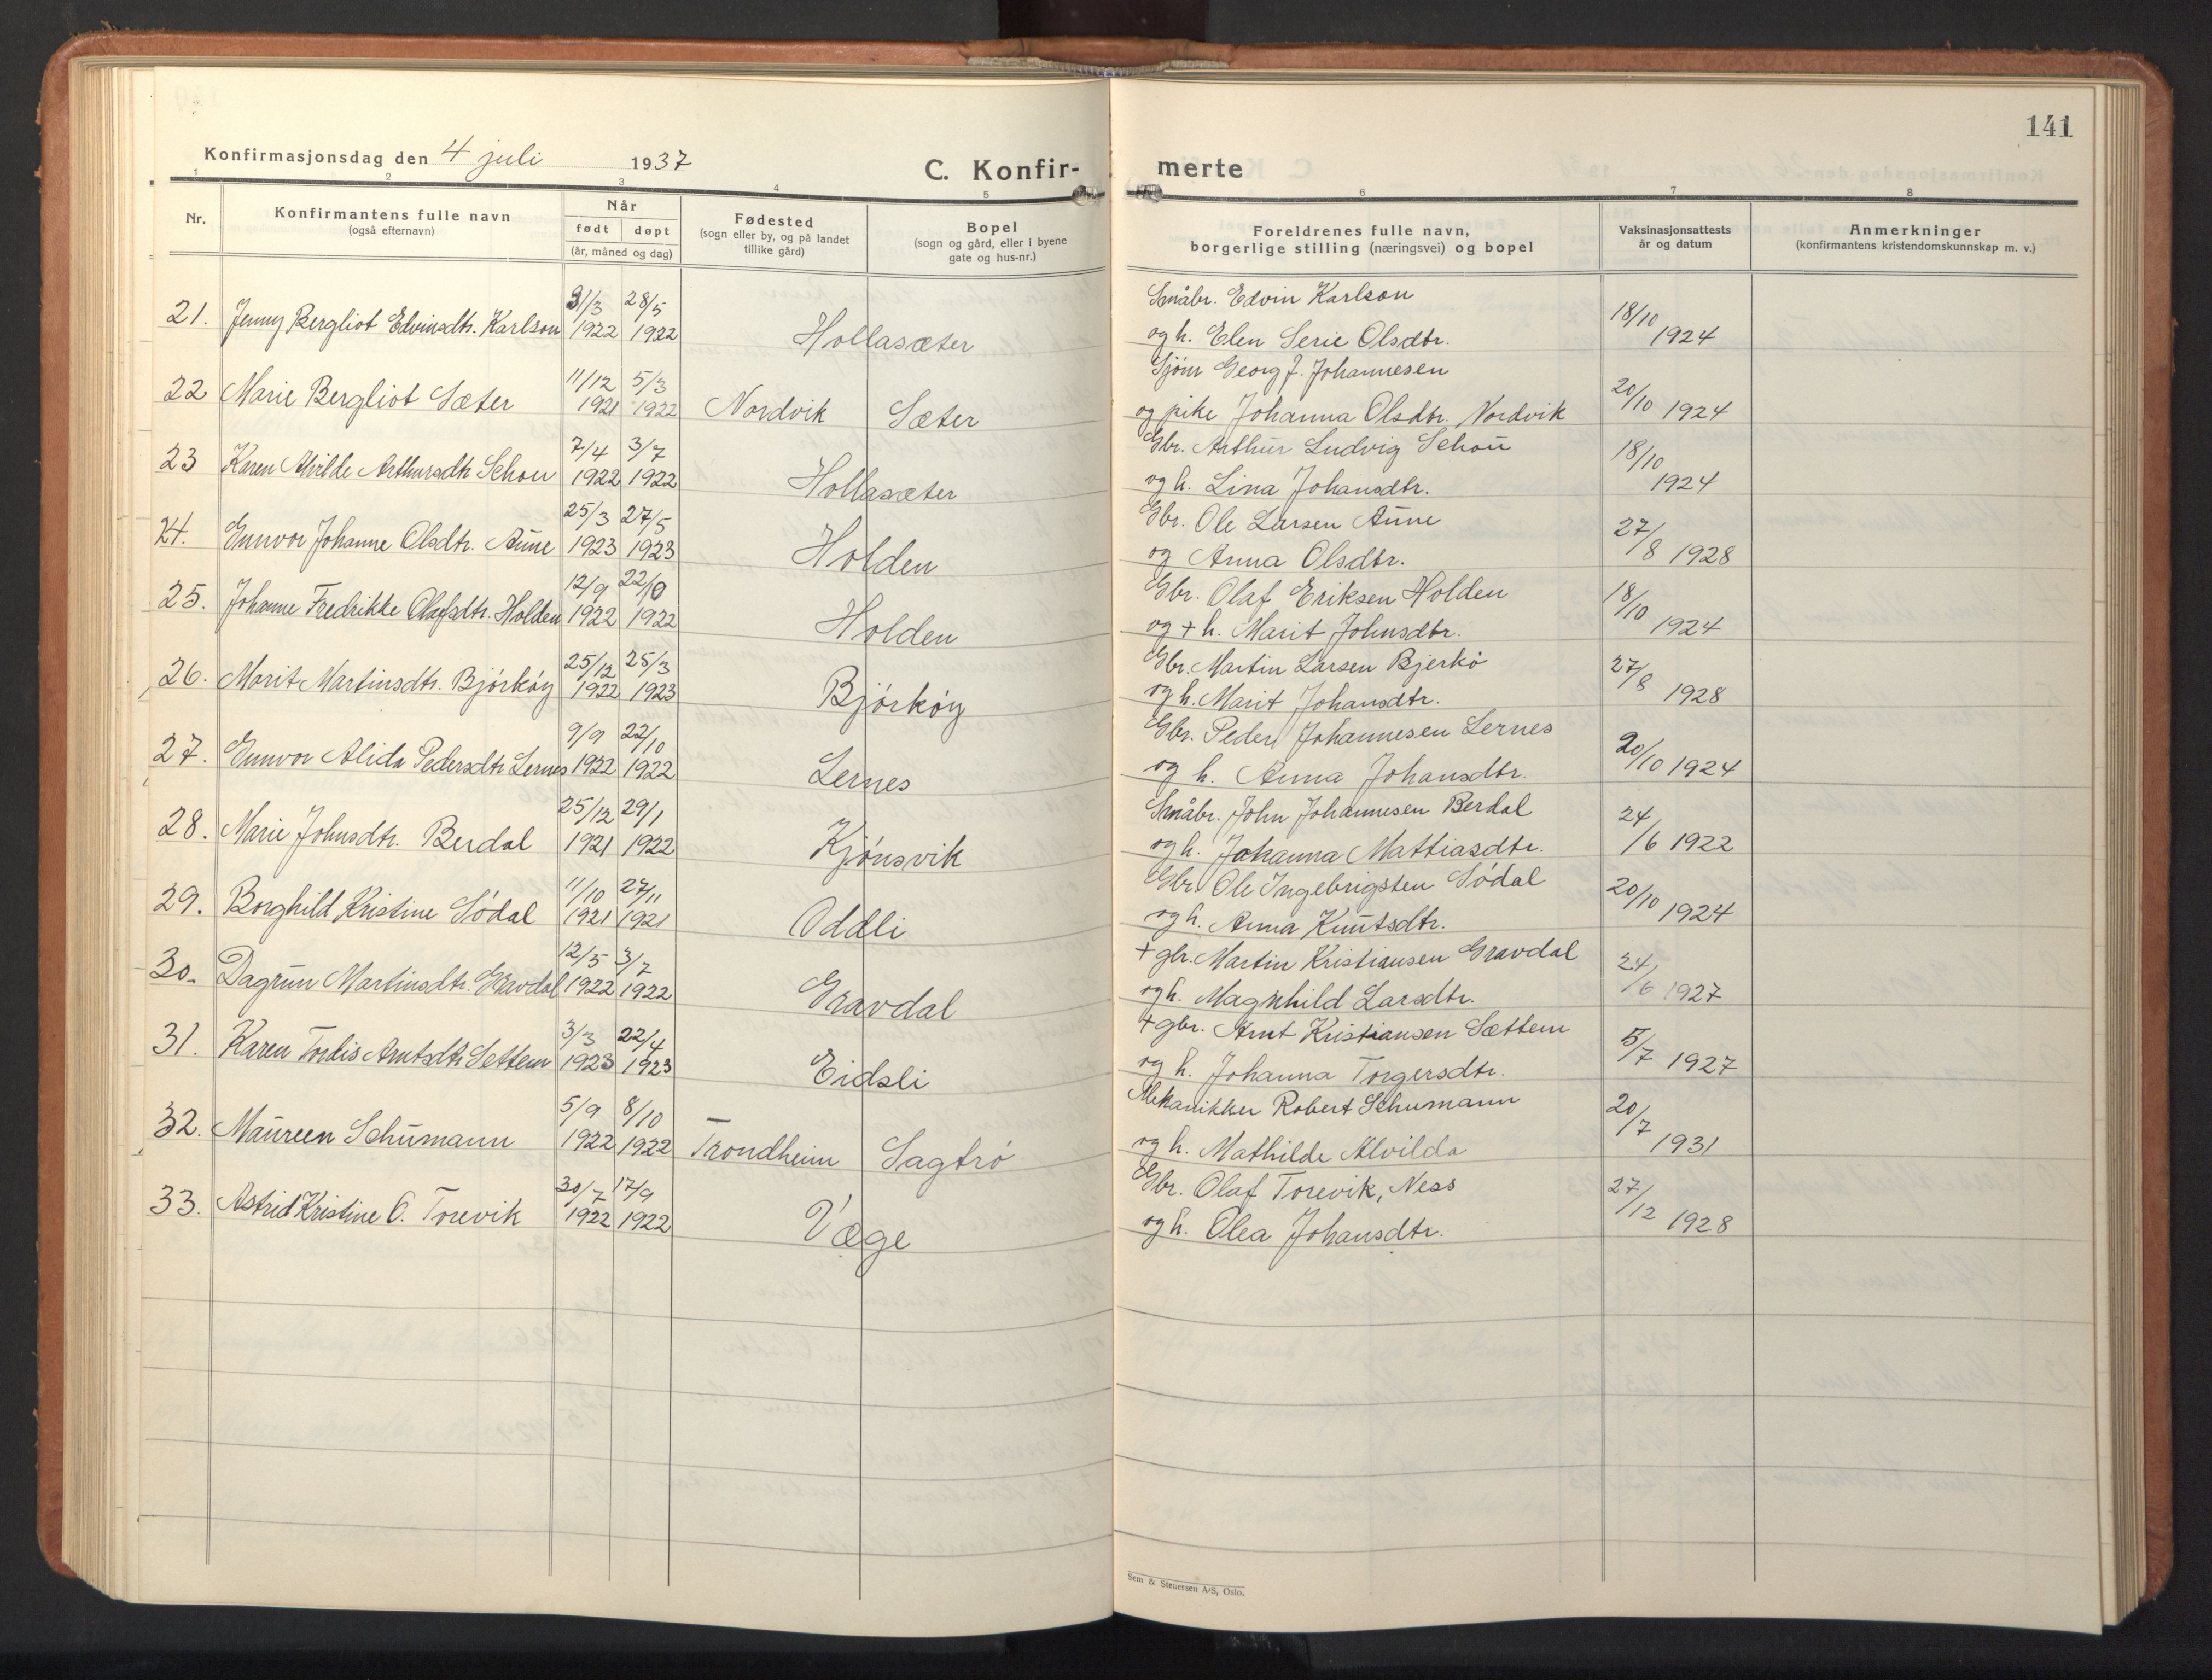 141
Konfirmasjonsdag den 4 juli 1937
C. Konfir-
merte
1 2 3 4 5 6 7 8
Nr. Konfirmantens fulle navn Når Fødested Bopel Foreldrenes fulle navn, Vaksinasjonsattests Anmerkninger
(også efternavn) født døpt (sogn eller by, og på landet (sogn og gård, eller i byene borgerlige stilling (næringsvei) og bopel år og datum (konfirmantens kristendomskunnskap m. v.)
(år, måned og dag) tillike gård) gate og hus-nr.)
31/3 28/5 Småbr. Edvin Karlson 18/10
21. Jenny Bergliot Edvinsdtr. Karlson 1922 1922 Hollasæter og h. Elen Serie Olsdtr. 1924
11/12 5/3 Sjøm Georg J. Johannesen 20/10
22 Marie Bergliot Sæter 1921 1922 Nordvik Sæter og pike Johanna Olsdtr. Nordvik 1924
7/4 3/7 Gbr. Arthur Ludvig Schou 18/10
23 Karen Alvilde Arthursdtr Schou 1922 1922 Hollasæter og h. Lina Johansdtr. 1924
25/3 27/5 Gbr. Ole Larsen Aune 27/8
24. Gunvor Johanne Olsdtr. Aune 1923 1923 Holden og Anna Olsdtr. 1928
12/9 Gbr. Olaf Eriksen Holden 18/10
25. Johanne Fredrikke Olafsdtr. Holden 1922 1922 Holden og + h. Marit Johnsdtr. 1924
25/12 25/3 Gbr. Martin Larsen Bjerkö 27/8
26. Marit Martinsdtr. Bjørkøy 1922 1923 Bjørkøy og h. Marit Johansdtr. 1928
9/9 22/10 Gbr. Peder Johannesen Lernes 20/10
27. Gunvor Alida Pedersdtr Lernes 1922 1922 Lernes og h. Anna Johansdtr. 1924
25/12 29/1 Småbr. John Johannesen Berdal 24/6
28. Marie Johnsdtr. Berdal 1921 1922 Kjønsvik og h. Johanna Mattiasdtr. 1922
11/10 27/11 Gbr. Ole Ingebrigsten Södal 20/10
29. Borghild Kristine Södal 1921 1921 Oddli og h. Anna Knutsdtr. 1924
12/5 3/7 + gbr. Martin Kristiansen Gravdal 24/6
30. Dagrun Martinsdtr. Gravdal 1922 1922 Gravdal og h. Magnhild Larsdtr. 1927
3/3 22/4 + gbr. Arnt Kristiansen Sættem 5/7
31. Karen Tordis Arntsdtr Settem 1923 1923 Eidsli og h. Johanna Torgersdtr. 1927
5/9 8/10 Mekanikker Robert Schumann 20/7
32. Maureen Schumann 1922 1922 Trondheim Sagtrø og h. Mathilde Alvilda 1931
30/7 17/9 Gbr. Olaf Torevik, Ness 27/12
33. Astrid Kristine O. Torevik 1922 1922 Væge og h. Olea Johansdtr. 1928
Sem & Stenersen A/S, Oslo.